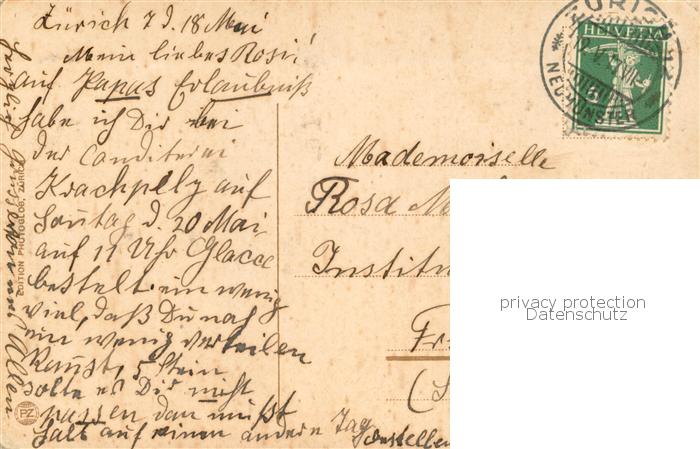 Zürich 7 d. 18 Mai
Mein liebes Rosi!
auf Papas Erlaubniß
habe ich Dir bei
der Conditerei
Krachpelz auf
Sontag d. 20 Mai
auf 11 Uhr Glacee
bestelt ein wenig
viel, daß Du nach
ein wenig verteilen
Kanst,
solte es Dir nicht
passen dan müßt
halt auf einen andern Tag
bestellen
Herzlich
Allen
EDITION PHOTOGLOB, ZÜRICH
PZ
Mademoiselle
Rosa
Institu
Fr
ZÜRICH
NEUMÜNSTER
HELVETIA
5
privacy protection
Datenschutz